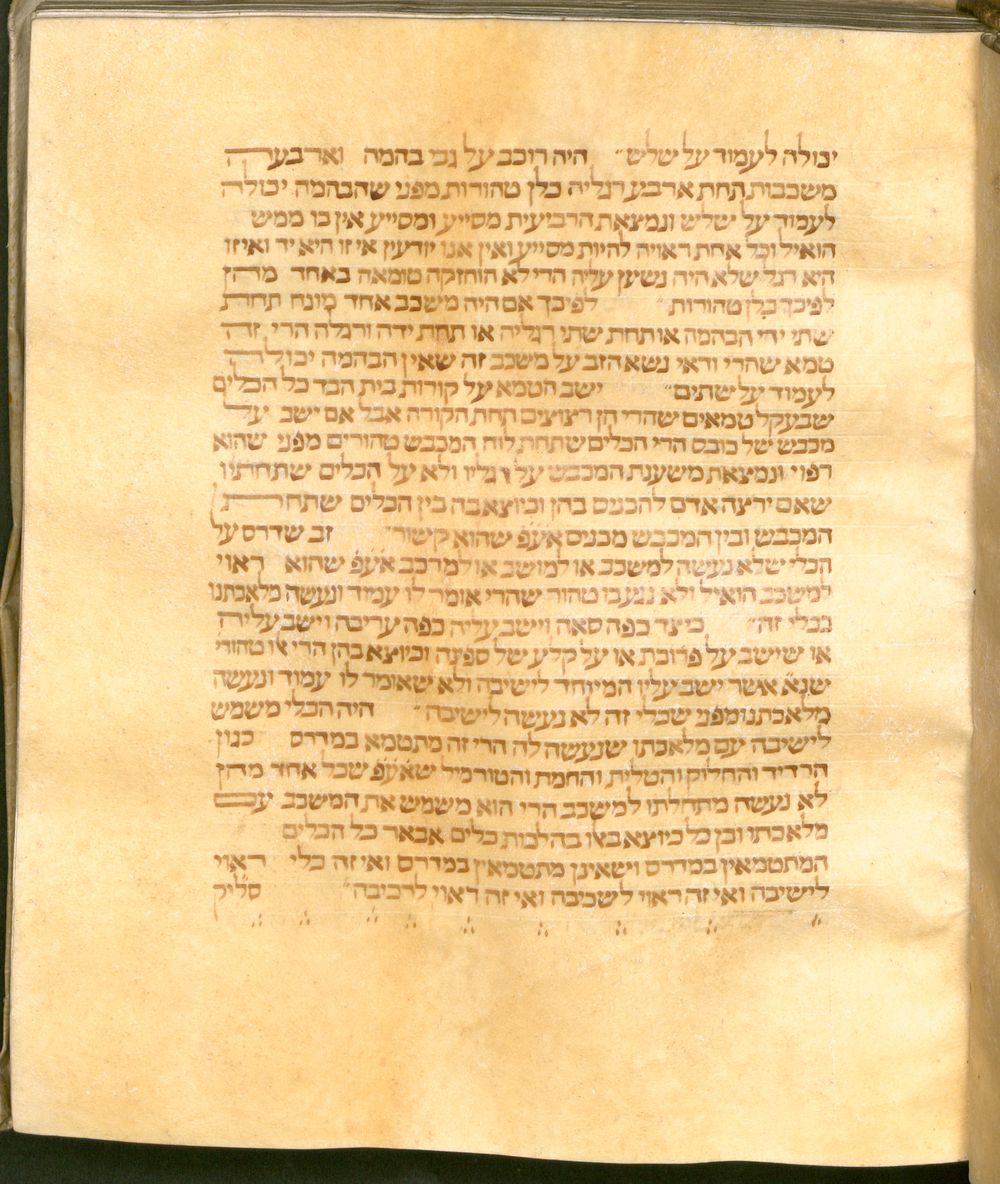 יכולה לעמוד על שלש״ היה רוכב על גבי בהמה וארבעה
משכבות תחת ארבע רגליה כלן טהורות מפני שהבהמה יכולה
לעמוד על שלש ונמצאת הרביעית מסייע ומסייע אין בו ממש
הואיל וכל אחת ראויה להיות מסייע ואין אנו יודעין אי זו היא יד ואיזו
היא רגל שלא היה נשען עליה הרי לא הוחזקה טומאה באחד מהן
לפיכך כלן טהורות״ לפיכך אם היה משכב אחד מונח תחת
שתי ידי הבהמה או תחת שתי רגליה או תחת ידה ורגלה הרי זה
טמא שהרי ודאי נשא הזב על משכב זה שאין הבהמה יכולה
לעמוד על שתים״ ישב הטמא על קורות בית הבד כל הכלים
שבעקל טמאים שהרי הן רצוצים תחת הקורה אבל אם ישב על
מכבש של כובס הרי הכלים שתחת לוח המכבש טהורים מפני שהוא
רפוי ונמצאת משענת המכבש על רגליו ולא על הכלים שתחתיו
שאם ירצה אדם להכניס בהן וכיוצא בה בין הכלים שתחת
המכבש ובין המכבש מכניס אע״פ שהוא קשור״ זב שדרס על
הכלי שלא נעשה למשכב או למושב או למרכב אע״פ שהוא ראוי
למשכב הואיל ולא נגעבו טהור שהרי אומר לו עמוד ונעשה מלאכתנו
בכלי זה״ כיצד כפה סאה וישב עליה כפה עריבה וישב עליה
או שישב על פרוכת או על קלע של ספינה וכיוצא בהן הרי אלו טהורי׳
שנ״א אשר ישב עליו המיוחד לישיבה ולא שאומר לו עמוד ונעשה
מלאכתנו מפני שכלי זה לא נעשה לישיבה״ היה הכלי משמש
לישיבה עם מלאכתו שנעשה לה הרי זה מתטמא במדרס כגון
הרדיד והחלוק והטלית והחמת והטורמיל שאע״פ שכל אחד מהן
לא נעשה מתחלתו למשכב הרי הוא משמש את המשכב עם
מלאכתו וכן כל כיוצא באלו בהלכות כלים אבאר כל הכלים
המתטמאין במדרס ושאינן מתטמאין במדרס ואי זה כלי ראוי
לישיבה ואי זה ראוי לשכיבה ואי זה ראוי לרכיבה״ סליק